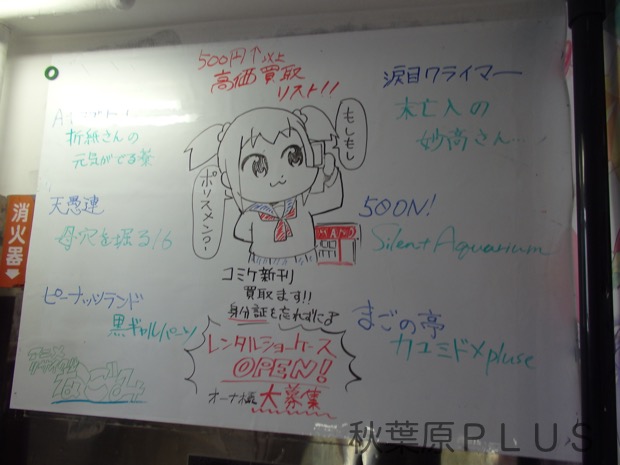 500円↑以上
高価買取
リスト!!
折紙さんの
元気がでる薬
天愚連
母穴を掘る16
ピーナッツランド
黒ギャルバーン
涙目ワライマー
未亡人の
妙高さん…
500N!
Silent Aquarium
まごの亭
カユミドxpluse
もしもし
ポリスメン?
A
コミケ新刊
買取ます!!
身分証を忘れずに
レンタルショーケース
OPEN!
オーナー様大募集
消火器
秋葉原PLUS